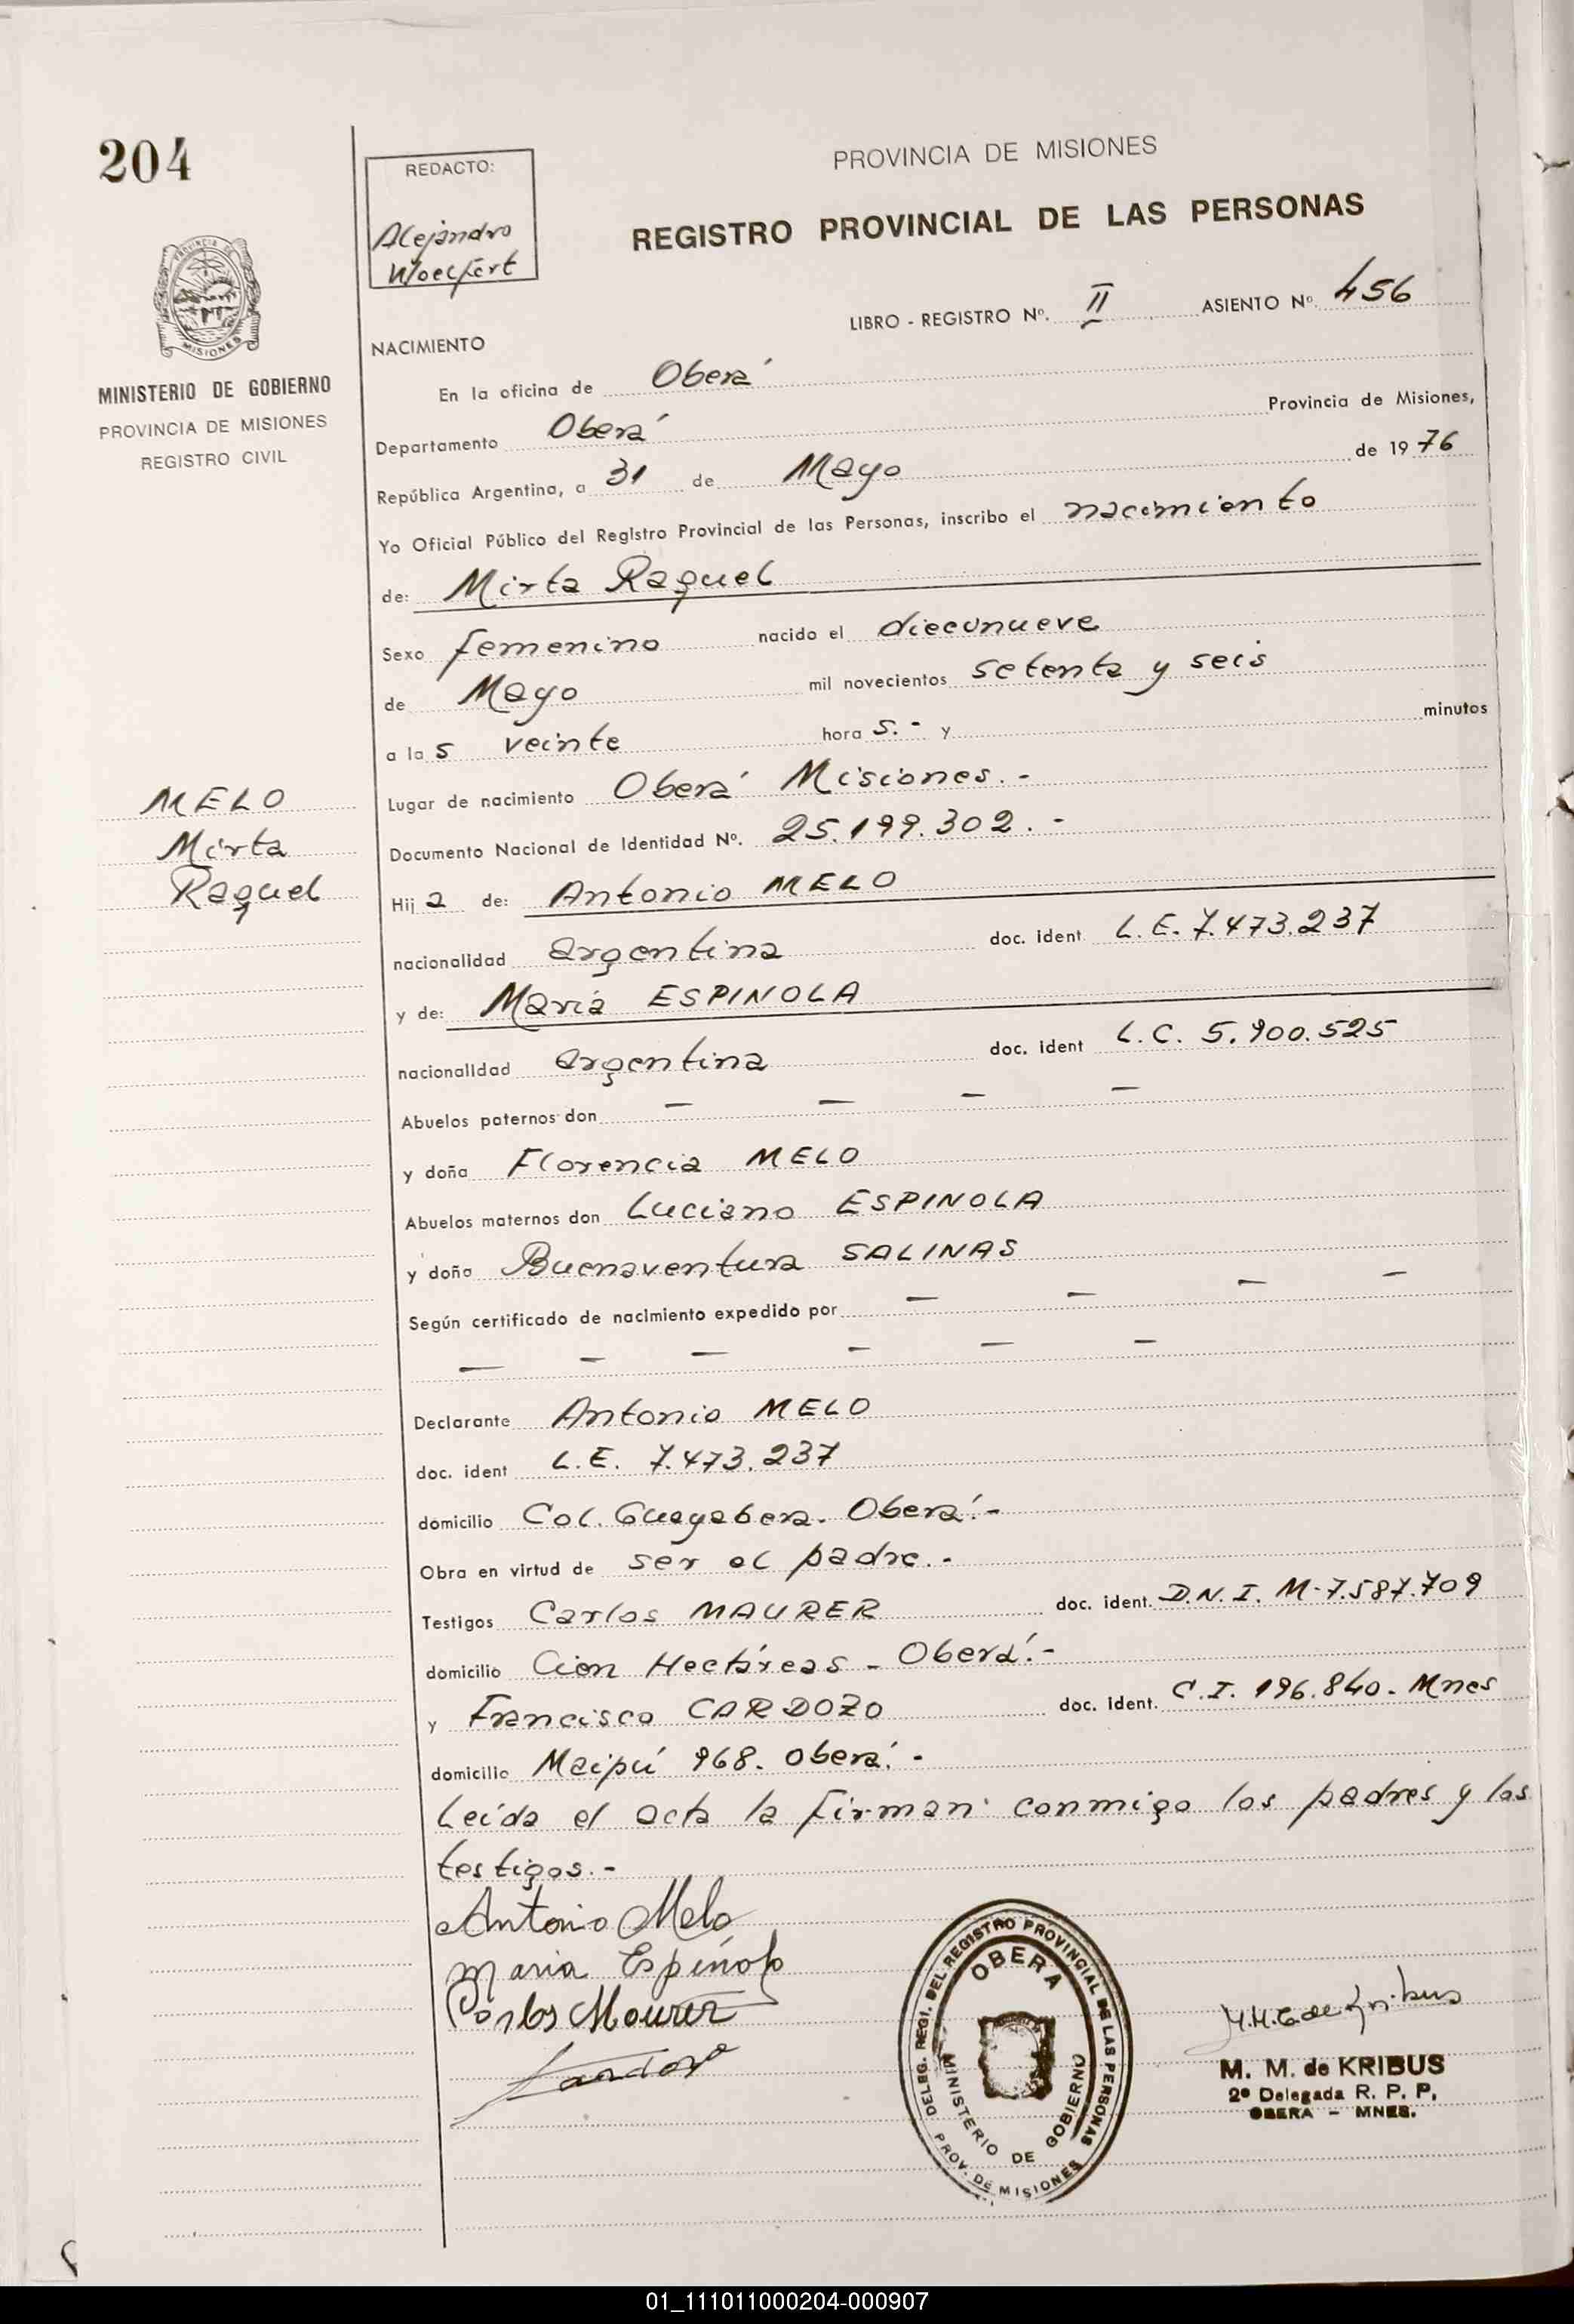 204
REDACTO:
Alejandro
Woelfert
PROVINCIA DE MISIONES
REGISTRO PROVINCIAL DE LAS PERSONAS
PROVINCIA DE
MISIONES
MINISTERIO DE GOBIERNO
PROVINCIA DE MISIONES
REGISTRO CIVIL
LIBRO - REGISTRO Nº. II ASIENTO Nº. 456
NACIMIENTO
En la oficina de Oberá
Departamento Oberá Provincia de Misiones,
República Argentina, a 31 de Mayo de 1976
Yo Oficial Público del Registro Provincial de las Personas, inscribo el nacimiento
de: Mirta Raquel
Sexo femenino nacido el diecinueve
de Mayo mil novecientos setenta y seis
a la s veinte hora s.- y minutos
Lugar de nacimiento Oberá Misiones.-
MELO
Mirta
Raquel
Documento Nacional de Identidad Nº. 25.199.302.-
Hij a de: Antonio MELO
nacionalidad argentina doc. ident L.E. 7.473.237
y de: María ESPINOLA
nacionalidad argentina doc. ident L.C. 5.900.525
Abuelos paternos don — — — —
y doña Florencia MELO
Abuelos maternos don Luciano ESPINOLA
y doña Buenaventura SALINAS
Según certificado de nacimiento expedido por — — — —
— — — — — —
Declarante Antonio MELO
doc. ident L.E. 7.473.237
domicilio Col. Guayabera. Oberá.-
Obra en virtud de ser el padre.-
Testigos Carlos MAURER doc. ident. D.N.I. M-7.587.709
domicilio Cien Hectáreas - Oberá.-
y Francisco CARDOZO doc. ident. C.I. 196.840. Mnes
domicilio Maipú 968. Oberá.-
Leída el acta la firman conmigo los padres y los
testigos.-
Antonio Melo
Maria Espínola
Carlos Maurer
Cardozo
DELEG. REGI. DEL REGISTRO PROVINCIAL DE LAS PERSONAS
OBERA
MINISTERIO DE GOBIERNO
PROV. DE MISIONES
M.M. de Kribus
M. M. de KRIBUS
2º Delegada R. P. P.
OBERA - MNES.
01_111011000204-000907